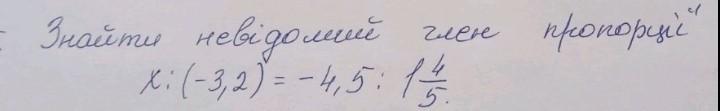 Знайти невідомий член пропорції
x : (-3,2) = -4,5 : 1 4/5.